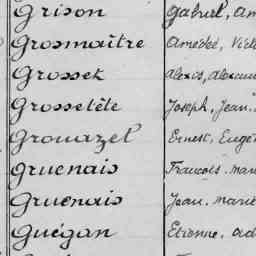 Grison Gabriel, Am
Grosmaître Amédée, Vict
Grossek Alexis, Alexan
Grossetête Joseph, Jean.
Grouazel Ernest, Eugèn
Gruenais François. Mari
Gruenais Jean. Marie
Guégan Etienne. Ad